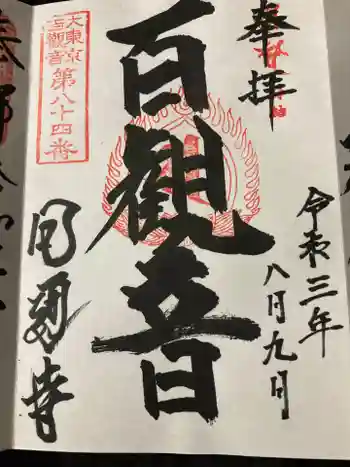 奉拝
令和三年
八月九日
百觀音
大東京
百觀音
第八十四番
円通寺